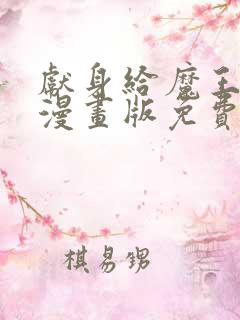 獻身給魔王
漫畫版免費
棋易甥